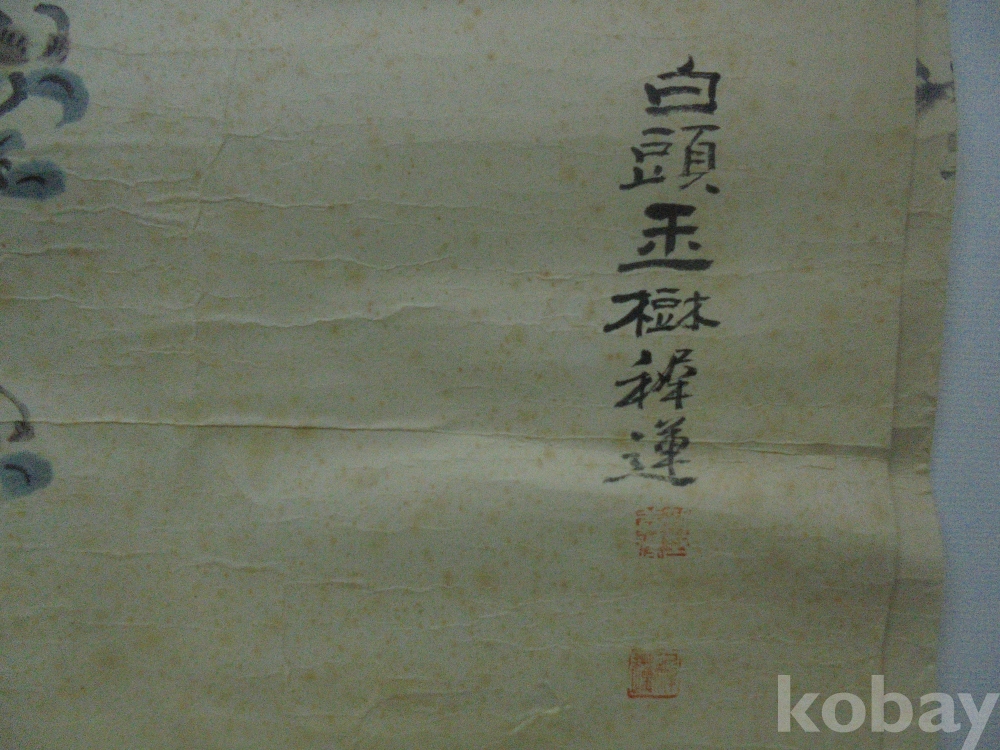 白頭玉樹稺蓮
kobay